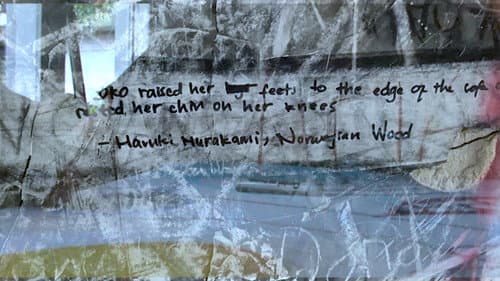 oko raised her feets to the edge of the
her chin on her knees
- Haruki Murakami, Norwegian Wood